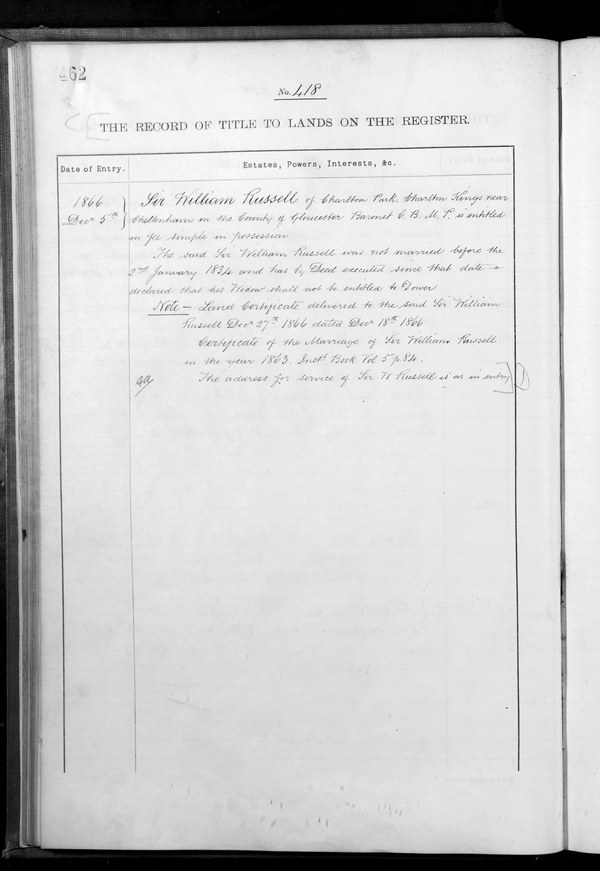 462
No. 418
THE RECORD OF TITLE TO LANDS ON THE REGISTER.
Date of Entry.
Estates, Powers, Interests, &c.
1866
Decr 5th
Sir William Russell of Charlton Park, Charlton Kings near
Cheltenham in the County of Gloucester Baronet C. B. M. P. is entitled
in fee simple in possession
The said Sir William Russell was not married before the
2nd January 1834 and has by Deed executed since that date
declared that his Widow shall not be entitled to Dower
Note – Land Certificate delivered to the said Sir William
Russell Decr 27th 1866 dated Decr 18th 1866
Certificate of the Marriage of Sir William Russell
in the year 1863. Inst. Book Vol 5 p. 84.
The address for service of Sir W Russell is as in entry